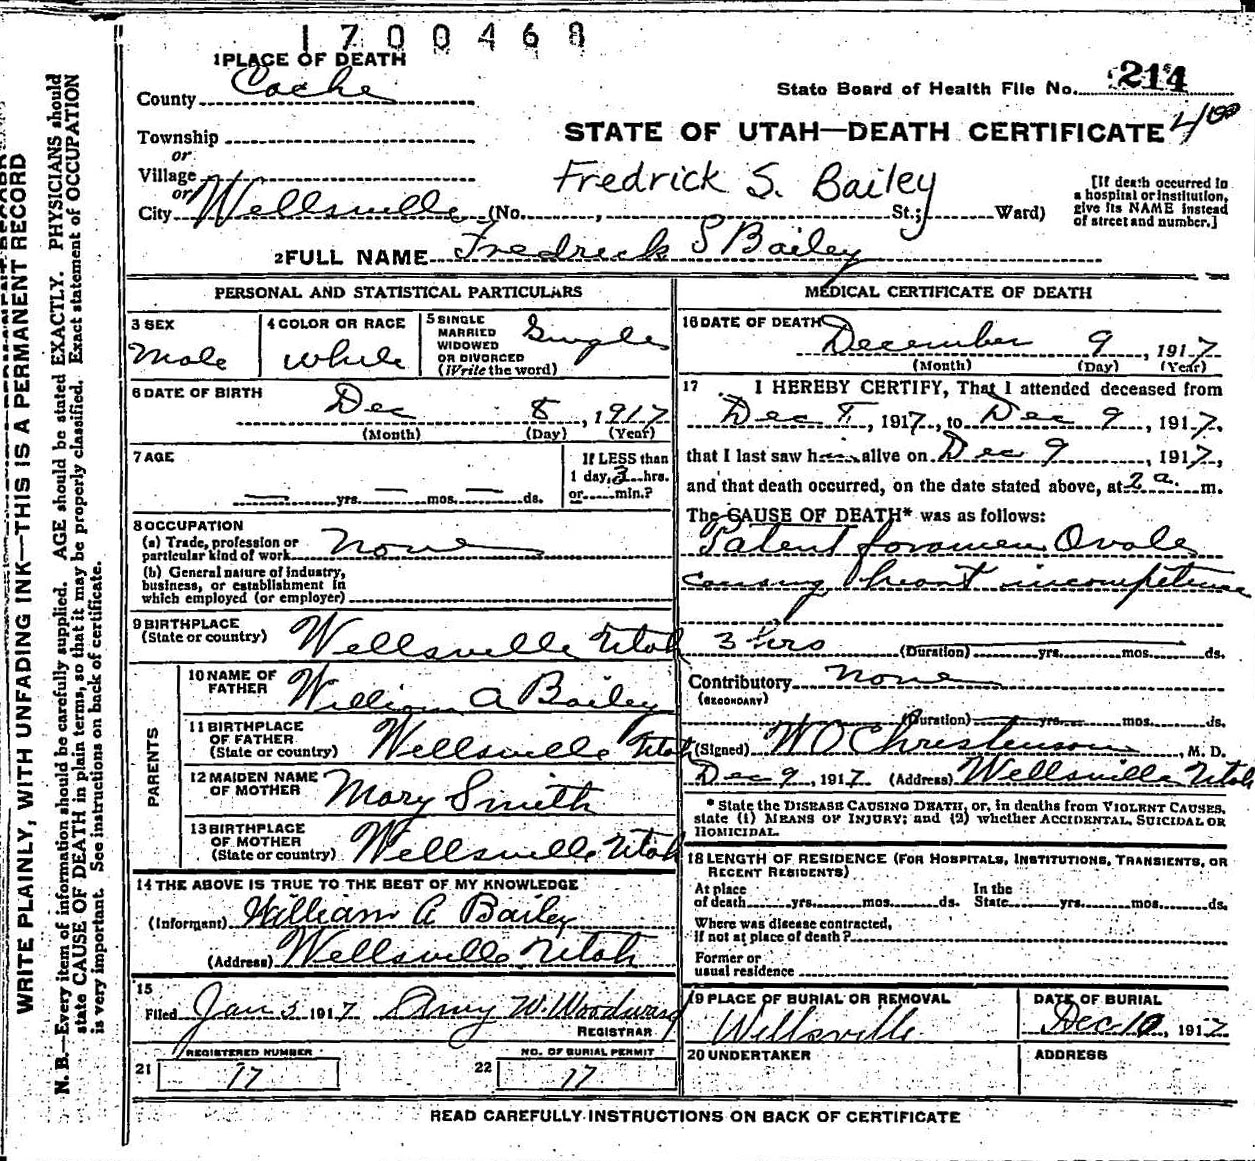 1700468
1 PLACE OF DEATH
County Cache
State Board of Health File No. 214
Township
or
Village
or
City Wellsville (No. , St.; Ward)
STATE OF UTAH—DEATH CERTIFICATE
Fredrick S. Bailey
[If death occurred in
a hospital or institution,
give its NAME instead
of street and number.]
2 FULL NAME Fredrick S Bailey
PERSONAL AND STATISTICAL PARTICULARS
3 SEX
Male
4 COLOR OR RACE
White
5 SINGLE
MARRIED
WIDOWED
OR DIVORCED
(Write the word)
Single
6 DATE OF BIRTH
Dec 8, 1917
(Month) (Day) (Year)
7 AGE
— yrs. — mos. — ds.
If LESS than
1 day, 3 hrs.
or min.?
8 OCCUPATION
(a) Trade, profession or
particular kind of work None
(b) General nature of industry,
business, or establishment in
which employed (or employer)
9 BIRTHPLACE
(State or country) Wellsville Utah
PARENTS
10 NAME OF
FATHER William A Bailey
11 BIRTHPLACE
OF FATHER
(State or country) Wellsville Utah
12 MAIDEN NAME
OF MOTHER Mary Smith
13 BIRTHPLACE
OF MOTHER
(State or country) Wellsville Utah
14 THE ABOVE IS TRUE TO THE BEST OF MY KNOWLEDGE
(Informant) William A Bailey
(Address) Wellsville Utah
15
Filed Jan 3 1917 Amy W. Woodward
REGISTRAR
REGISTERED NUMBER
21 17
NO. OF BURIAL PERMIT
22 17
MEDICAL CERTIFICATE OF DEATH
16 DATE OF DEATH
December 9, 1917
(Month) (Day) (Year)
17 I HEREBY CERTIFY, That I attended deceased from
Dec 8, 1917, to Dec 9, 1917.
that I last saw him alive on Dec 9, 1917,
and that death occurred, on the date stated above, at 2 a. m.
The CAUSE OF DEATH* was as follows:
Patent foramen Ovale
causing heart incompetence
3 hrs (Duration) yrs. mos. ds.
Contributory None
(SECONDARY)
(Duration) yrs. mos. ds.
(Signed) W O Christenson, M. D.
Dec 9, 1917 (Address) Wellsville Utah
* State the DISEASE CAUSING DEATH, or, in deaths from VIOLENT CAUSES,
state (1) MEANS OF INJURY; and (2) whether ACCIDENTAL, SUICIDAL OR
HOMICIDAL.
18 LENGTH OF RESIDENCE (FOR HOSPITALS, INSTITUTIONS, TRANSIENTS, OR
RECENT RESIDENTS)
At place
of death yrs. mos. ds.
In the
State yrs. mos. ds.
Where was disease contracted,
if not at place of death?
Former or
usual residence
19 PLACE OF BURIAL OR REMOVAL
Wellsville
DATE OF BURIAL
Dec 10, 1917
20 UNDERTAKER
ADDRESS
READ CAREFULLY INSTRUCTIONS ON BACK OF CERTIFICATE
WRITE PLAINLY, WITH UNFADING INK—THIS IS A PERMANENT RECORD
N. B.—Every item of information should be carefully supplied. AGE should be stated EXACTLY. PHYSICIANS should
state CAUSE OF DEATH in plain terms, so that it may be properly classified. Exact statement of OCCUPATION
is very important. See instructions on back of certificate.